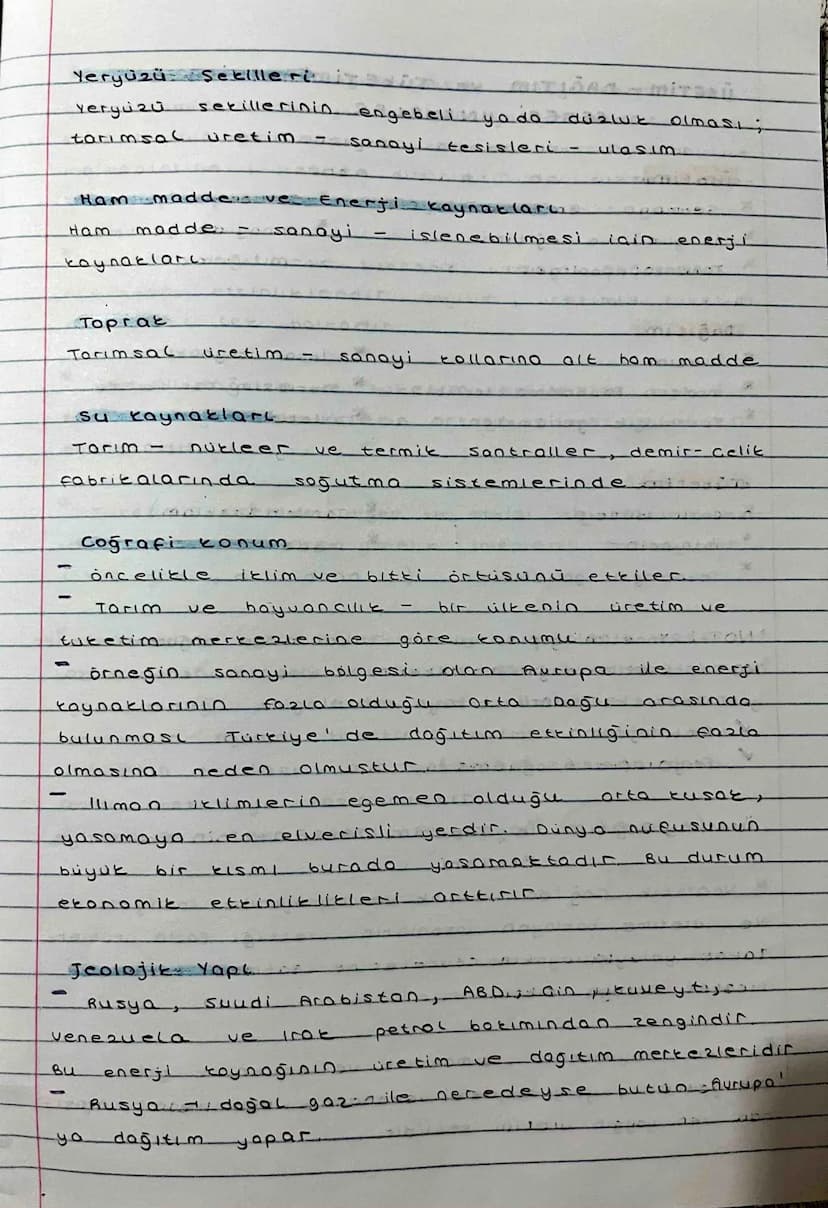 Yeryüzü Şekilleri
Yeryüzü şekillerinin engebeli yada düzlük olması;
tarımsal üretim - sanayi tesisleri - ulaşım
Ham madde ve Enerji kaynakları
Ham madde - sanayi - işlenebilmesi için enerji
kaynakları
Toprak
Tarımsal üretim - sanayi kollarına ait ham madde
Su kaynakları
Tarım - nükleer ve termik santraller, demir-çelik
fabrikalarında soğutma sistemlerinde
Coğrafi konum
- öncelikle iklim ve bitki örtüsünü etkiler.
- Tarım ve hayvancılık - bir ülkenin üretim ve
tüketim merkezlerine göre konumu
- örneğin sanayi bölgesi olan Avrupa ile enerji
kaynaklarının fazla olduğu Orta Doğu arasında
bulunması Türkiye'de dağıtım etkinliğinin fazla
olmasına neden olmuştur.
- Ilıman iklimlerin egemen olduğu orta kuşak,
yaşamaya en elverişli yerdir. Dünya nüfusunun
büyük bir kısmı burada yaşamaktadır. Bu durum
ekonomik etkinliklikleri arttırır
Jeolojik Yapı
- Rusya, Suudi Arabistan, ABD, Çin, Kuveyt,
Venezuela ve Irak petrol bakımından zengindir
Bu enerji kaynağının üretim ve dağıtım merkezleridir
- Rusya → doğal gaz ile neredeyse bütün Avrupa'
ya dağıtım yapar.